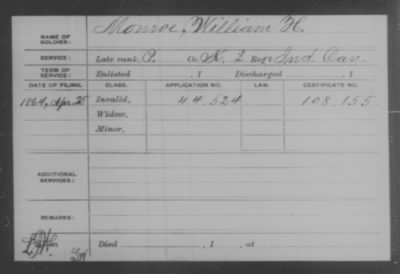 NAME OF SOLDIER: Monroe, William H.
SERVICE: Late rank, P. Co. K. 2 Reg't Ind. Cav.
TERM OF SERVICE: Enlisted , 1 Discharged , 1
DATE OF FILING. CLASS. APPLICATION NO. LAW. CERTIFICATE NO.
1864, Apr. 25 Invalid, 44.524 108.155
Widow,
Minor,
ADDITIONAL SERVICES:
REMARKS:
Died , 1 , at